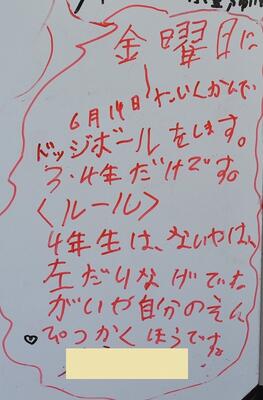 金曜日に
6月14日たいくかんで
ドッジボールをします。
3・4年だけです。
〈ルール〉
4年生は、ないやは、
左だけなげでな
がいや自分のえん
ぴつかくほうです。